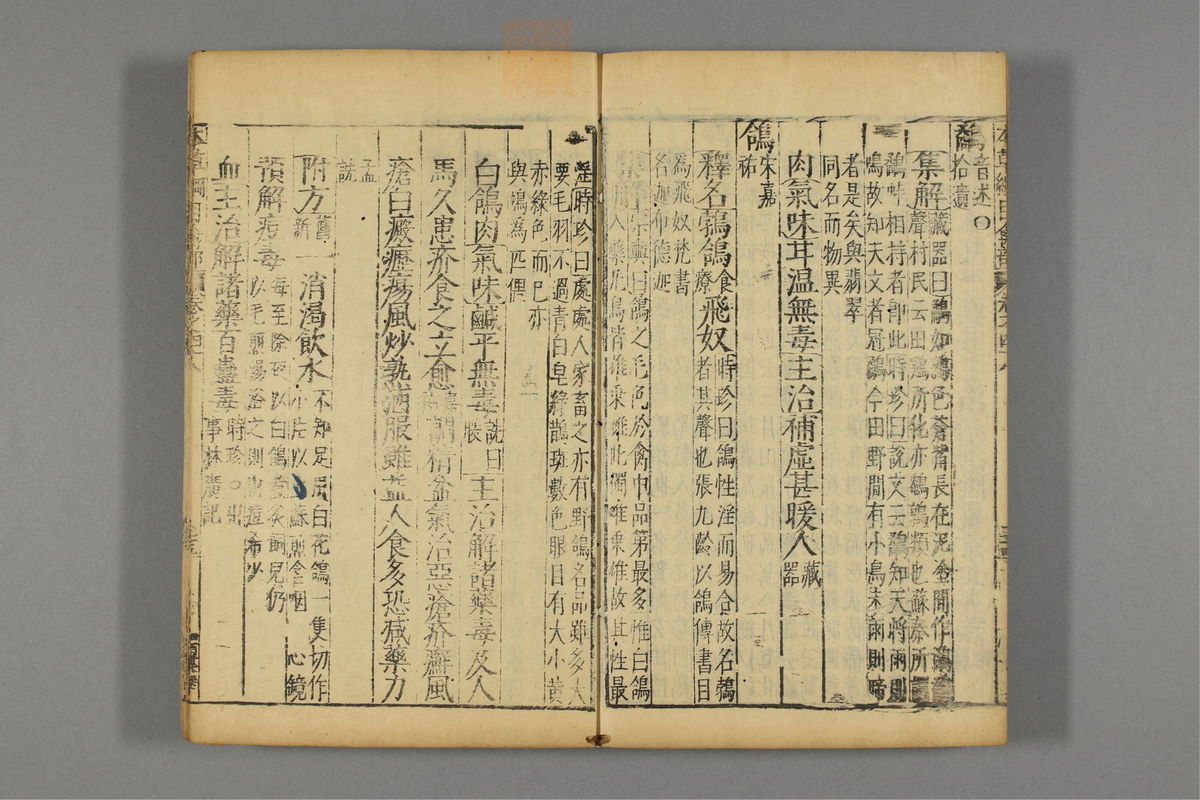 鷸音述○
拾遺
集解藏器曰鷸如鶉色蒼觜長在泥塗間作鷸鷸
聲村民云田雞所化亦鵪鶉類也蘇秦所謂
鷸蚌相持者即此時珍曰說文云鷸知天將雨則
鳴故知天文者冠鷸今田野間有小鳥未雨則啼
者是矣與翡翠
同名而物異
肉氣味甘溫無毒主治補虛甚暖人藏器
鴿宋嘉
祐
釋名鵓鴿食療飛奴時珍曰鴿性淫而易合故名鵓
者其聲也張九齡以鴿傳書目
為飛奴梵書
名迦布德迦
集解宗奭曰鴿之毛色於禽中品第最多惟白鴿
入藥凡鳥皆雄乘雌此獨雌乘雄故其性最
淫時珍曰處處人家畜之亦有野鴿名品雖多大
要毛羽不過青白皂綠鵲斑數色眼目有大小黃
赤綠色而已亦
與鳩為匹偶
白鴿肉氣味鹹平無毒詵曰主治解諸藥毒及人
馬久患疥食之立愈嘉祐調精益氣治惡瘡疥癬風
瘡白癜癧瘍風炒熟酒服雖益人食多恐減藥力
孟
詵
附方舊一新消渴飲水不知足用白花鴿一隻切作
小片以蘇煎含咽心鏡
預解痘毒每至除夜以白鴿煑炙飼兒仍
以毛煎湯浴之則出痘稀少
血主治解諸藥百蠱毒時珍○出
事林廣記